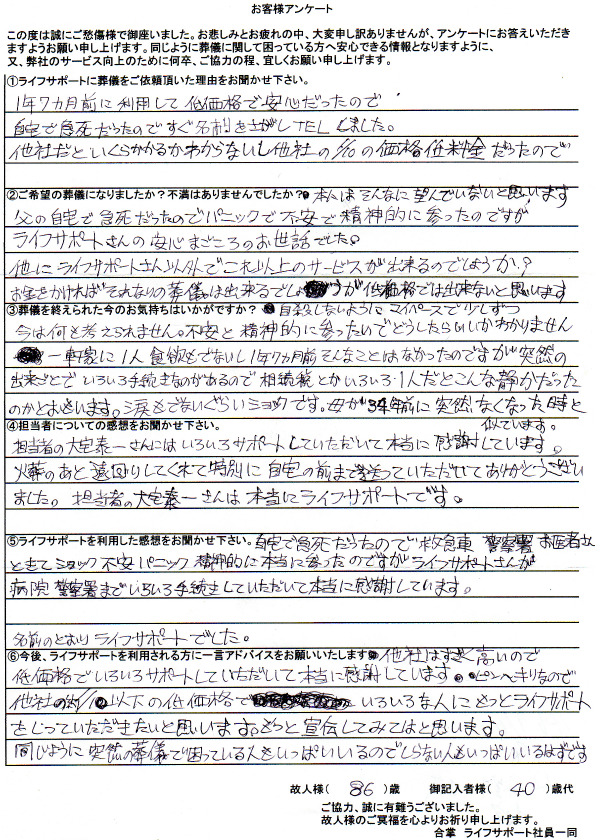 お客様アンケート
この度は誠にご愁傷様で御座いました。お悲しみとお疲れの中、大変申し訳ありませんが、アンケートにお答えいただき
ますようお願い申し上げます。同じように葬儀に関して困っている方へ安心できる情報となりますように、
又、弊社のサービス向上のために何卒、ご協力の程、宜しくお願い申し上げます。
①ライフサポートに葬儀をご依頼頂いた理由をお聞かせ下さい。
1年7カ月前に利用して低価格で安心だったので
自宅で急死だったのですぐ名刺をさがしTELしました。
他社だといくらかかるかわからないし他社の1/10の価格低料金だったので
②ご希望の葬儀になりましたか？不満はありませんでしたか？ 本人はそんなに望んでいないと思います
父の自宅で急死だったのでパニックで不安で精神的に参ったのですが
ライフサポートさんの安心まごころのお世話でした。
他にライフサポートさん以外でこれ以上のサービスが出来るのでしょうか？
お金をかければそれなりの葬儀は出来るでしょうが低価格では出来ないと思います
③葬儀を終えられた今のお気持ちはいかがですか？ 自殺しないようにマイペースで少しずつ
今は何も考えられません。不安と精神的に参ったいでどうしたらいいかわかりません
一軒家に1人食欲もでないし1年7カ月前そんなことはなかったのですが突然の
出来ごとでいろいろ手続きなのがあるので相続税とかいろいろ1人だとこんな静かだった
のかとおもいます。涙もでないぐらいショックです。母が34年前に突然なくなった時と
似ています。
④担当者についての感想をお聞かせ下さい。
担当者の大宅泰一さんにはいろいろサポートしていただいて本当に感謝しています。
火葬のあと遠回りしてくれて特別に自宅の前まで送っていただいてありがとうござい
ました。担当者の大宅泰一さんは本当にライフサポートです。
⑤ライフサポートを利用した感想をお聞かせ下さい。自宅で急死だったので救急車 警察署 お医者さん
ときてショック不安パニック精神的に本当に参ったのですがライフサポートさんが
病院警察署までいろいろ手続きしていただいて本当に感謝しています。
名前のとおりライフサポートでした。
⑥今後、ライフサポートを利用される方に一言アドバイスをお願いいたします 他社はすごく高いので
低価格でいろいろサポートしていただいて本当に感謝しています。ピンからキリなので
他社の 以下の低価格で いろいろな人にもっとライフサポート
をしっていただきたいと思います。もっと宣伝してみてはと思います。
同じように突然の葬儀で困っている人もいっぱいいるのでしらない人もいっぱいいるはずです
故人様( 86 )歳 御記入者様( 40 )歳代
ご協力、誠に有難うございました。
故人様のご冥福を心よりお祈り申し上げます。
合掌 ライフサポート社員一同